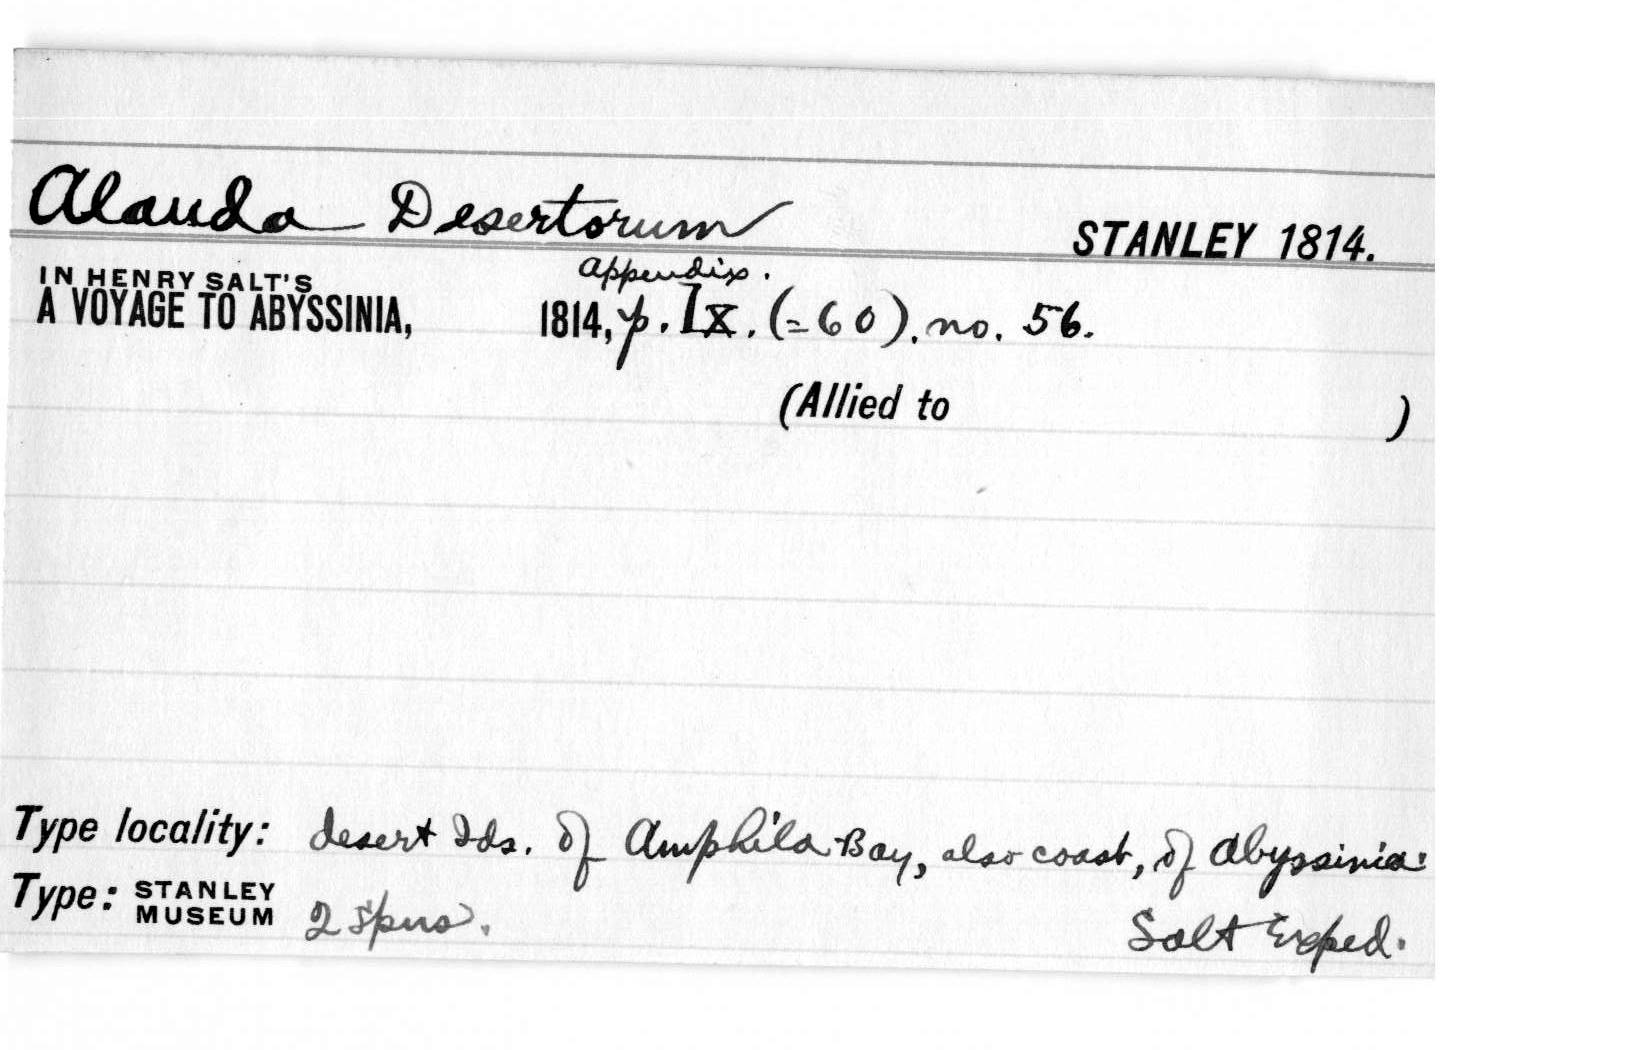 Alauda Desertorum STANLEY 1814.
IN HENRY SALT'S appendix.
A VOYAGE TO ABYSSINIA, 1814, p. lx. (=60). no. 56.
(Allied to )
Type locality: desert Ids. of Amphila Bay, also coast, of Abyssinia.
Type: STANLEY MUSEUM 2 spns. Salt Exped.